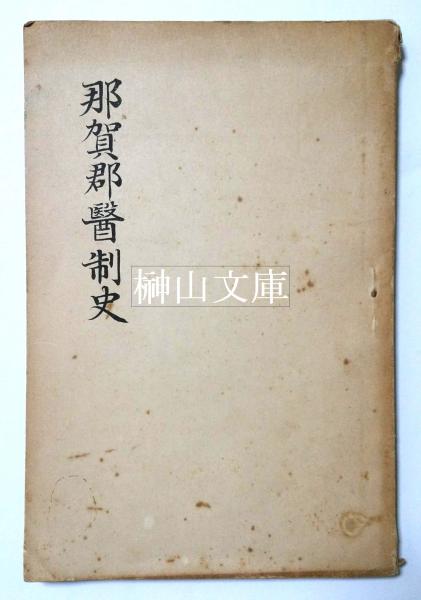 那賀郡醫制史
榊山文庫